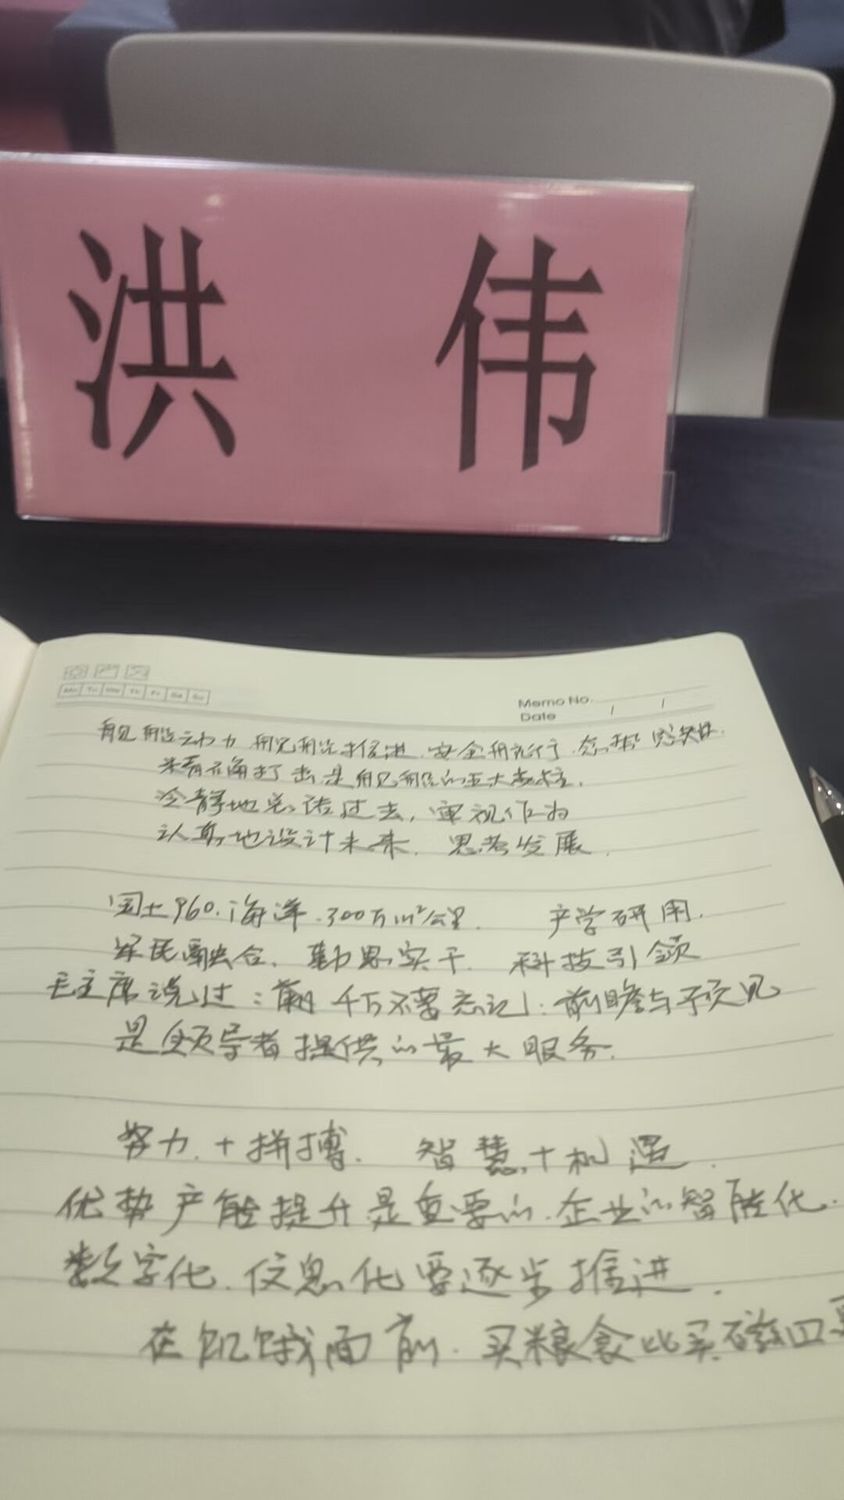 洪 伟
Mo Tu We Th Fr Sa Su
Memo No.
Date / /
船舶动力 船舶 推进 安全航行
打击是船舶的五大
冷静地总结过去，审视作为
认真地设计未来．思考发展．
国土960．海洋．300万m²公里． 产学研用．
军民融合．勤思实干． 科技引领
毛主席说过： 千万不要忘记：前瞻与预见
是领导者提供的最大服务．
努力．＋拼搏． 智慧＋机遇．
优势产能提升是重要的．企业的智能化．
数字化．信息化要逐步推进．
在饥饿面前．买粮食比买